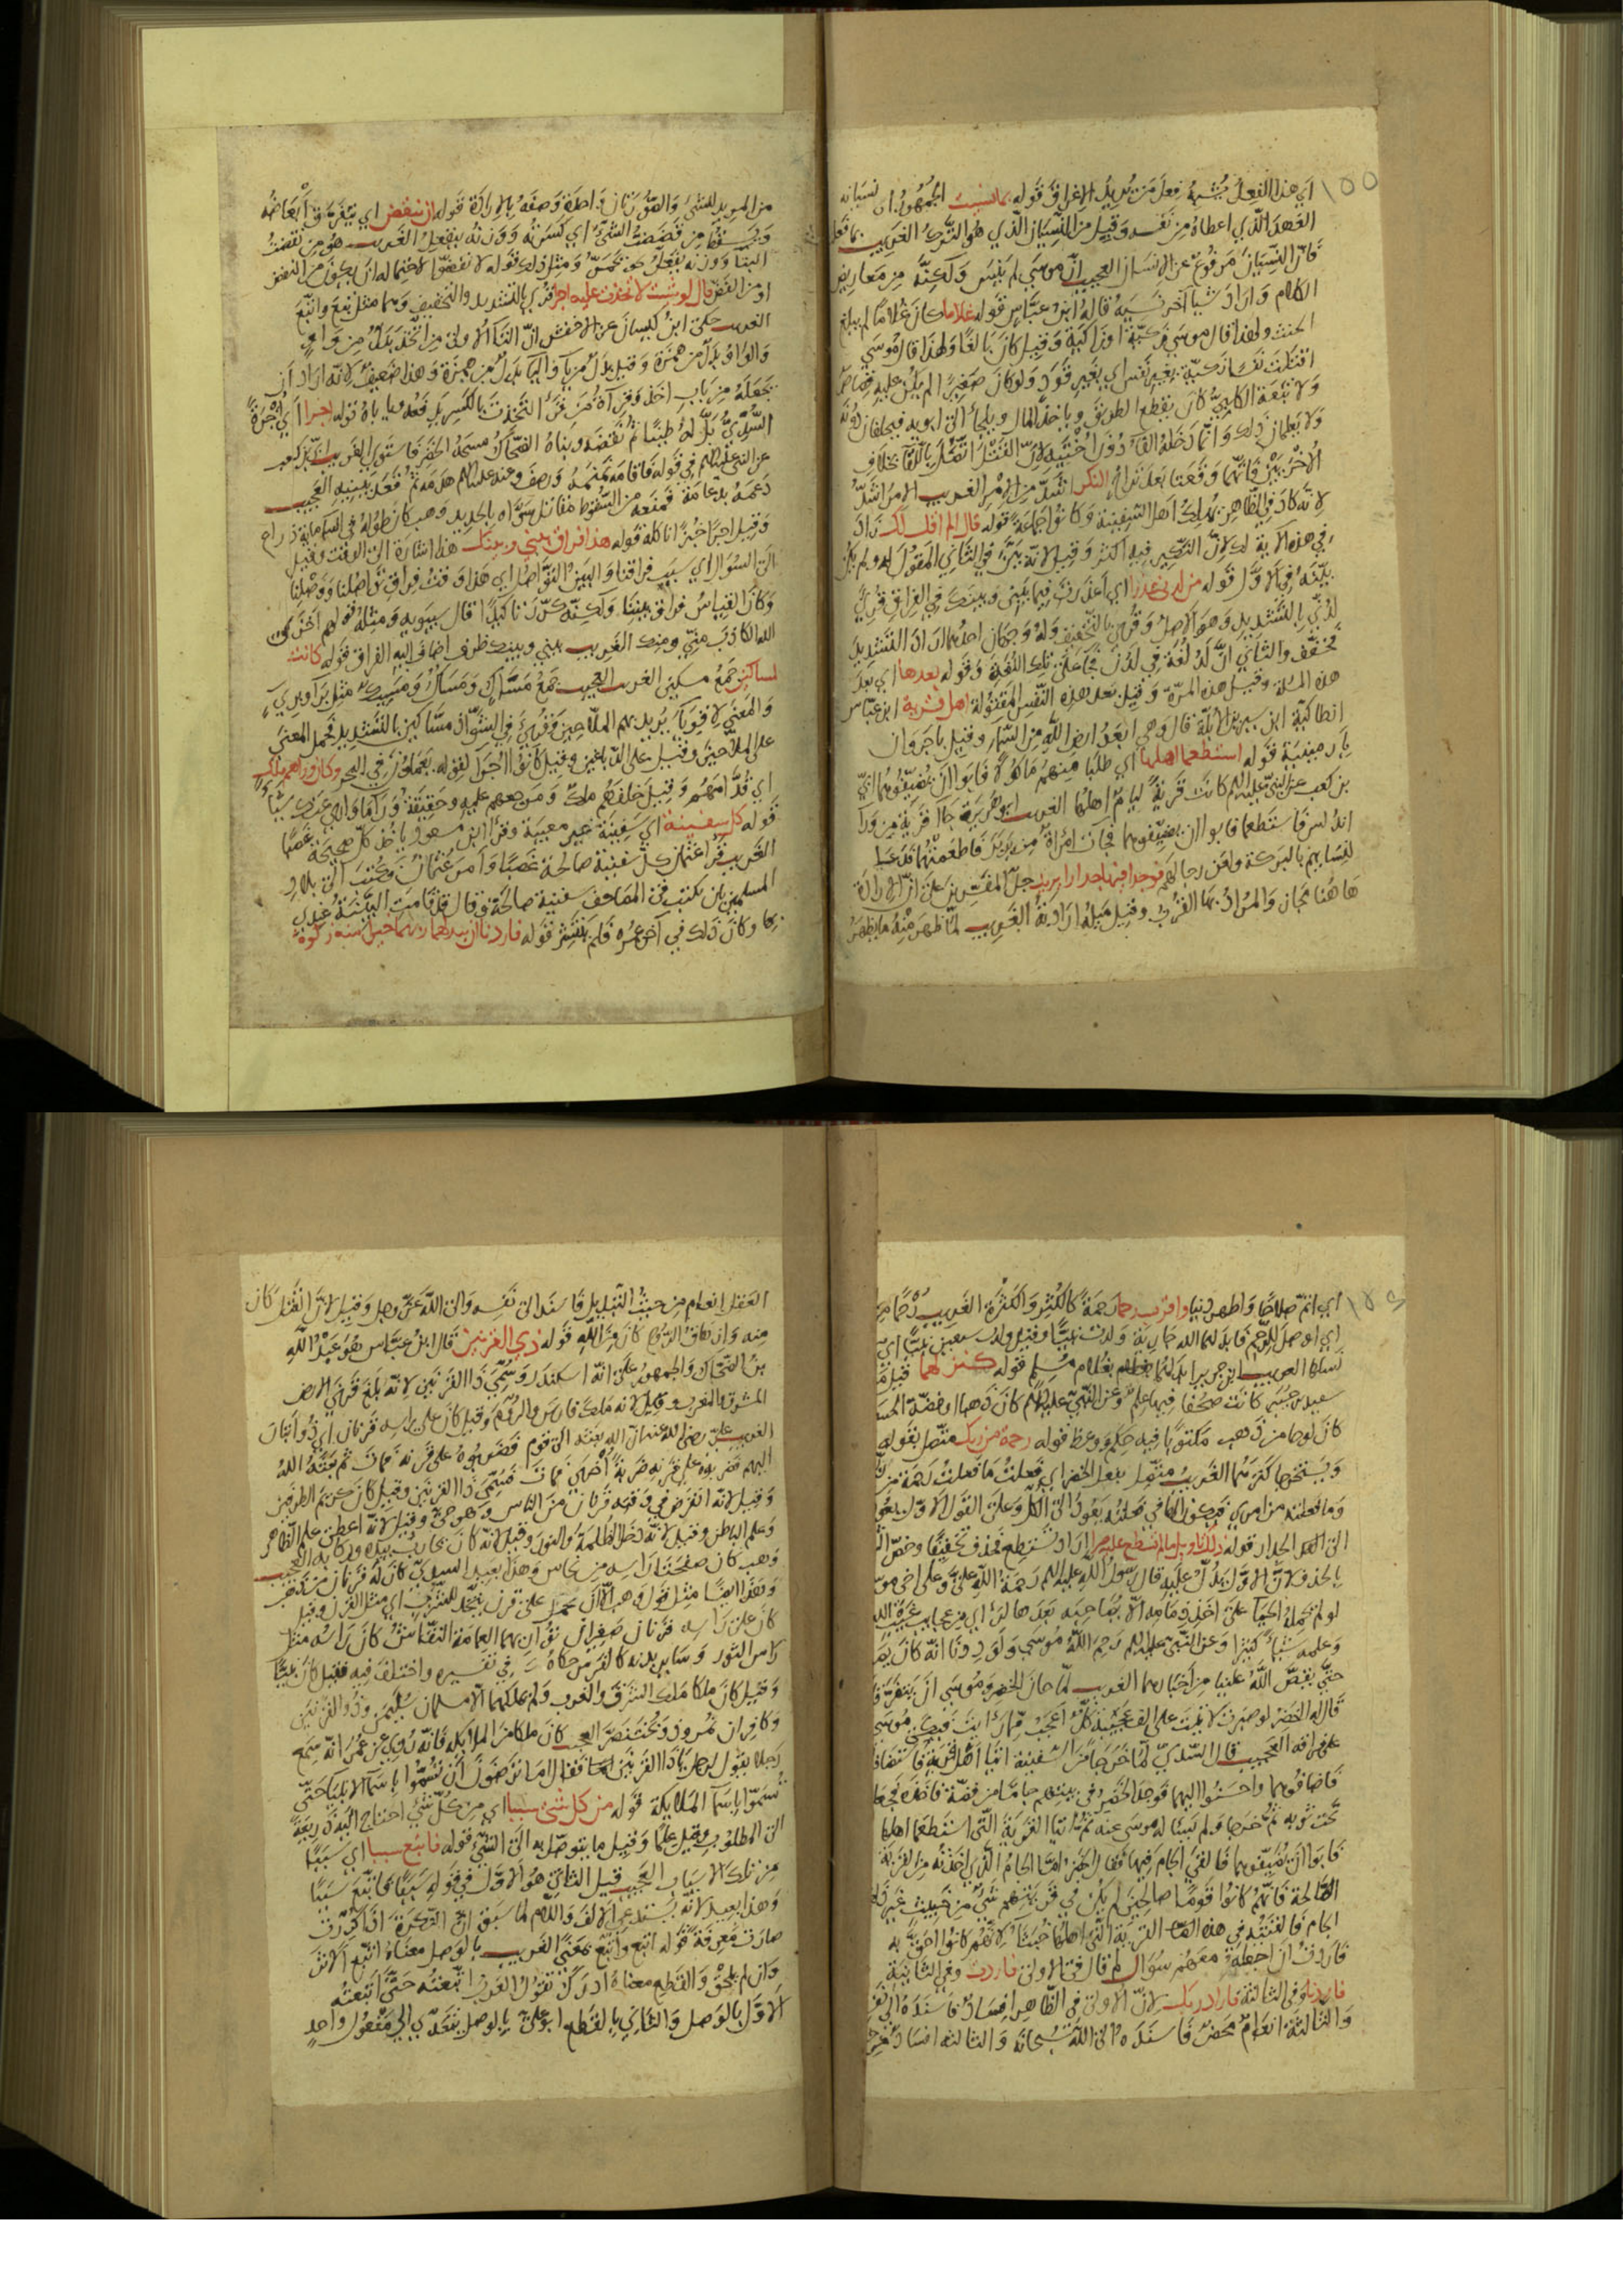 ١٥٥
اي هذا الفعل يشبه فعل من يريد الاغراق قوله بما نسيت الجمهور ان نسيانه
العهد الذي اعطاه من نفسه وقيل من النسيان الذي هو الترك الغريب بما فعل
فان النسيان مرفوع عن الانسان العجيب ان موسى لم ينس ولكنه من معاريض
الكلام واراد شيا آخر نسيه قاله ابن عباس قوله غلاما كان غلاما لم يبلغ
الحنث ولهذا قال موسى زكية او زاكية وقيل كان بالغا ولهذا قال موسى
اقتلت نفسا زكية بغير نفس اي بغير قود ولو كان صغيرا لم يكن عليه قصاص
ولا تبعة الكلبي كان يقطع الطريق وياخذ المال ويلجأ الى ابويه فيحلفان دونه
ولا يعلمان ذلك وانما دخله الفآء دون اختيه لان القتل اتصل باللقا بخلاف
الاخريين فانهما وقعتا بعد تراخ النكر اشد من الامر الغريب الامر اشد
لانه كاد في الظاهر يهلك اهل السفينة وكانوا جماعة قوله قال الم اقل لك زاد
في هذه الآية لك لان النكير فيه اكثر وقيل لانه بين في الثاني المقول له ولم يكن
بينه في الاول قوله من لدني عذرا اي اعذرت فيما بيني وبينك في الفراق قرئ
لدني بالتشديد وهو الاصل وقرئ بالتخفيف وله وجهان احدهما اراد التشديد
فخفف والثاني ان لد لغة في لدن فجاء على تلك اللغة وقوله بعدها اي بعد
هذه المسئلة وقيل هذه المرة وقيل بعد هذه النفس المقتولة اهل قرية ابن عباس
انطاكية ابن سيرين الابلة قال وهي ابعد ارض الله من السمآء وقيل باجروان
بارمينية قوله استطعما اهلها اي طلبا منهم ماكولا فابوا ان يضيفوهما ابي
بن كعب عن النبي عليه السلم كانت قرية لئاما اهلها الغريب ابو هريرة جاآ قرية من ورآ
اندلس فاستطعما فابوا ان يضيفوهما فجات امراة من بربر فاطعمتهما فدعيا
لنسايهم بالبركة ولعن رجالهم فوجدا فيها جدارا يريد جل المفسرين على ان الارادة
هاهنا مجاز والمراد بها القرب وقيل ميله ارادته الغريب لما ظهر منه ما يظهر
من المريد للشئ والهوزنان واحدة وصفه بالارادة قوله ان ينقض اي يتفرق ابعاضه
ويسقط من قضضت الشئ اي كسرته ووزنه ينفعل الغريب هو من نقضت
البنآ ووزنه يفعل نحو يحمر ومثل ذلك قوله لانفضوا لاحتماله ان يكون من النفض
او من الفض قال لو شئت لاتخذت عليه اجرا قرئ بالتشديد والتخفيف وهما مثل تبع واتبع
الغريب حكى ابن كيسان عن الاخفش ان التآء الاولى من اتخذ بدل من واو
والواو بدل من همزة وقيل بدل من يآء واليآء بدل من همزة وهذا ضعيف لانه اراد ان
يجعله من باب اخذ وقرآءة من قرأ لتخذت بالكسر يدفعه وياباه قوله اجرا اي اجرة
السدي بل له طينا ثم نقضه وبناه الضحاك مسحه الخضر فاستوى الغريب ابي بن كعب
عن النبي عليه السلم في قوله فاقامه قممه ورصف وعنه عليه السلم هدمه ثم قعد يبنيه العجيب
دعمه بدعامة تمنعه من السقوط مقاتل سواه بالحديد وهب كان طوله في السما ماية ذراع
وقيل اجرا خبزا ناكله قوله هذا فراق بيني وبينك هذا اشارة الى الوقت وقيل
الى السؤال اي سبب فراقنا والبين التواصل اي هذا وقت فراق تواصلنا ووصلنا
وكان القياس فراق بيننا ولكنه كرر تاكيدا قال سيبويه ومثله قولهم اخزى
الله الكاذب مني ومنك الغريب بيني وبينك ظرف اضاف اليه الفراق قوله كانت
لمساكين جمع مسكين الغريب العجيب جمع مساك ومساك ومسيك
والمعنى لاقويآء يريد بهم الملاحين وقرئ في الشواذ مساكين بالتشديد فحمل المعنى
على الملاحين وقيل على الدباغين وقيل كانوا اجرآ لقوله يعملون في البحر وكان وراهم ملك
اي قدامهم وقيل خلفهم ملك ومرجعهم عليه وحقيقة ورآء ما وارى عنك شيا
قوله كل سفينة اي سفينة غير معيبة وقرأ ابن مسعود ياخذ كل صحيحة غصبا
الغريب قرأ عثمان كل سفينة صالحة غصبا وامر عثمان فكتب الى بلاد
المسلمين بان يكتب في المصاحف سفينة صالحة وقال قد قامت البينة عندي
بها وكان ذلك في آخر عمره فلم ينتشر قوله فاردنا ان يبدلهما ربهما خيرا منه زكوة
اي اتم صلاحا واطهر دينا واقرب رحما رحمة كالكثر والكثرة الغريب رحما من
اي اوصل للرحم فابدلهما الله جارية ولدت نبيا وقيل ولدت سبعين نبيا اي
نسلها الغريب ابن جرير ابدلهما بغلام مسلم قوله كنز لهما قيل
سعيد بن جبير كانت صحفا فيها علم وعن النبي عليه السلم كان ذهبا وفضة الحسن
كان لوحا من ذهب مكتوبا فيه حكم ووعظ قوله رحمة من ربك متصل بقوله
ويستخرجا كنزهما الغريب متصل بفعل الخضر اي فعلت ما فعلت رحمة من
وما فعلته عن امري فيكون الها في فعلته يعود الى الكل وعلى القول الاول يعود
الى اقامة الجدار قوله ذلك تاويل ما لم تسطع عليه صبرا اراد تستطع فحذف تخفيفا وخص
بالحذف لان الاول يدل عليه قال رسول الله عليه السلم رحمة الله علي وعلى اخي موسى
لو لم تحمله الحيآ على اخذ ذمامه الا يصاحبه بعدها لرأى من عجايب
وعلمه شيئا كثيرا وعن النبي عليه السلم رحم الله موسى ولوددنا انه كان
حتى يقص الله علينا من اخبارهما الغريب لما حان الخضر وموسى ان يتفرقا
قال له الخضر لو صبرت لاتيت على الف عجيبة كل اعجب مما رايت فبكى موسى
على فراقه العجيب قال السدي لما خرجا من السفينة اتيا اهل قرية فاستضافا
فاضافوهما واحسنوا اليهما فوجد الخضر في بيتهم جاما من فضة فاخذه
تحت ثوبه ثم خرجا ولم يسئله موسى عنه ثم اتيا القرية التي استطعما اهلها
فابوا ان يضيفوهما فالقى الجام فيها فقال الخضر اما الجام الذي اخذته من القرية
الصالحة فانهم كانوا قوما صالحين لم يكن في قريتهم شئ من خبيث غير
الجام فالقيته في هذه القرية التي اهلها خبثآء لانهم كانوا احق به
فاردت ان اجعله معهم سؤال لم قال في الاولى فاردت وفي الثانية
فاردنا وفي الثالثة فاراد ربك لان الاولى في الظاهر افساد فاسنده الى نفسه
والثالثة انعام محض فاسنده الى الله سبحانه والثانية افساد من حيث
العقل انعام من حيث التبديل فاسند الى نفسه والى الله عز وجل وقيل لان القتل كان
منه وازهاق الروح كان من الله قوله ذي القرنين قال ابن عباس هو عبد الله
بن الضحاك والجمهور على انه اسكندر وسمي ذا القرنين لانه بلغ قرني الارض
المشرق والمغرب وقيل لانه ملك فارس والروم وقيل كان على راسه قرنان اي ذوابتان
الغريب علي رضي الله عنه ان الله بعثه الى قوم فضربوه على قرنه فمات ثم بعثه الله
اليهم فضربوه على قرنه ضربة اخرى فمات فسمي ذا القرنين وقيل كان كريم الطرفين
وقيل لانه انقرض في وقته قرنان من الناس وهو حي وقيل لانه اعطي علم الظاهر
وعلم الباطن وقيل لانه دخل الظلمة والنور وقيل لانه كان يحارب بيده وركابه العجيب
وهب كان صفحتا راسه من نحاس وهذا بعيد السدي كان له قرنان
وهذا ايضا مثل قول وهب الا ان يحمل على قرن
كان على راسه قرنان صغيران تواريهما العمامة النقاش كان راسه مثل
راس الثور وساير بدنه كالفرس حكاه في تفسيره واختلف فيه فقيل كان نبيا
وقيل كان ملكا ملك الشرق والغرب ولم يملكهما الا مسلمان سليمن وذو القرنين
وكافران نمروذ وبختنصر العجيب كان ملكا من الملايكة فانه روي عن عمر انه سمع
رجلا يقول لرجل يا ذا القرنين فقال اما ترضون ان تسموا باسمآء الانبيآء حتى
تسموا باسمآء الملايكة قوله من كل شئ سببا اي من كل شئ احتاج اليه ذريعة
الى المطلوب وقيل علما وقيل ما يتوصل به الى الشئ قوله فاتبع سببا اي سببا
من تلك الاسباب العجيب قيل الثاني هو الاول في قوله سببا فاتبع سببا
وهذا بعيد لانه يستدعي الالف واللام لما سبق ان النكرة اذا كررت
صارت معرفة قوله اتبع واتبع بمعنى الغريب بالوصل معناه اتبع الاثر
وان لم يلحق والقطع معناه ادرك تقول العرب اتبعته حتى اتبعته
الاول بالوصل والثاني بالقطع ابو علي بالوصل يتعدى الى مفعول واحد